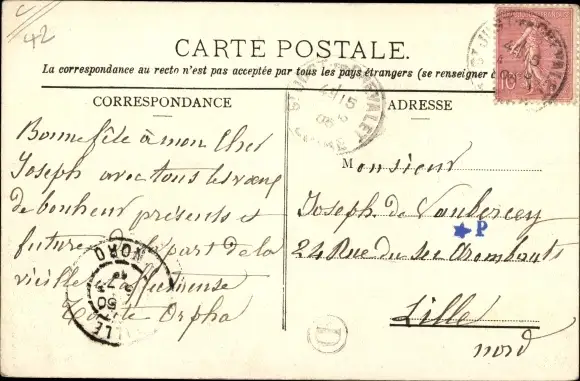 42
CARTE POSTALE.
La correspondance au recto n'est pas acceptée par tous les pays étrangers (se renseigner à
CORRESPONDANCE
ADRESSE
Bonne fête à mon Cher
Joseph avec tous les vœux
de bonheur présents et
future De la part de la
vieille affectueuse
Tante Orpha
Monsieur
Joseph de Vaubercey
P
24 Rue du Sec Arembauts
Lille
nord
D
LILLE
NORD
10